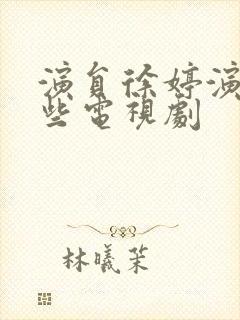 演員徐婷演
些電視劇
林曦茉